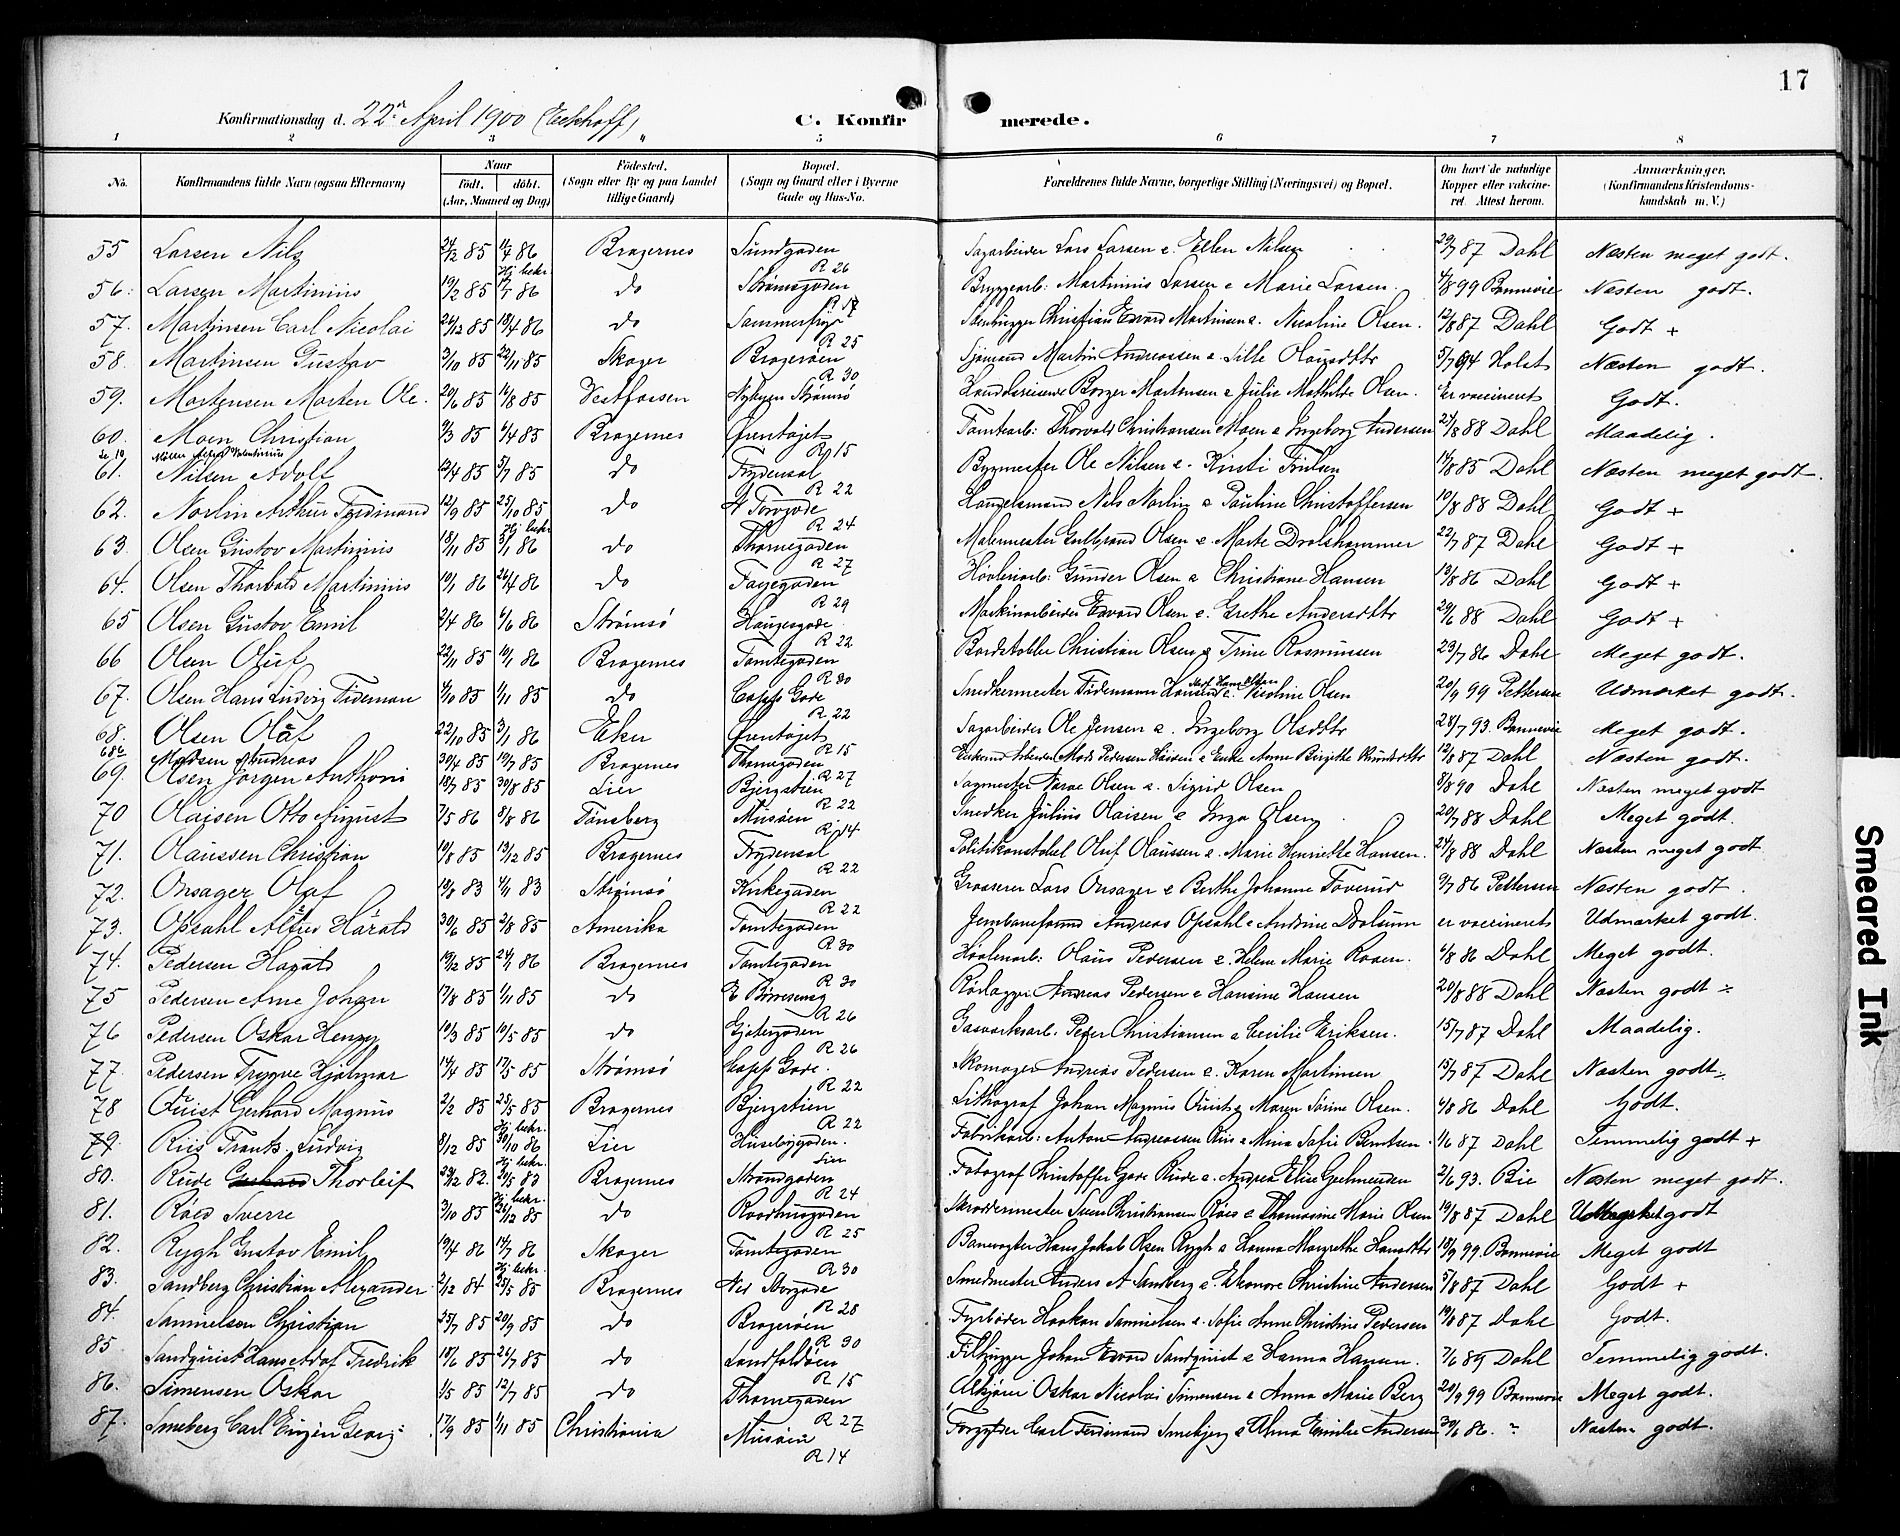 17
Konfirmationsdag d. 22n April 1900 (Eckhoff)
C. Konfirmerede.
1 2 3 4 5 6 7 8
No. Konfirmandens fulde Navn (ogsaa Efternavn) Naar født. døbt. (Aar, Maaned og Dag) Fødested. (Sogn eller By og paa Landet tillige Gaard) Bopæl. (Sogn og Gaard eller i Byerne Gade og Hus-No. Forældrenes fulde Navne, borgerlige Stilling (Næringsvei) og Bopæl. Om havt de naturlige Kopper eller vakcineret. Attest herom. Anmærkninger. (Konfirmandens Kristendomskundskab m. V.)
55 Larsen Nils 24/2 85 11/4 86 Bragernes Sundgaden R 26 Sagarbeider Lars Larsen e. Ellen Nilsen 29/7 87 Dahl Næsten meget godt.
56. Larsen Martinius 19/2 85 Hj bekr. 17/7 86 do Strømsgaden R 17 Bryggearb: Martinius Larsen e Marie Larsen. 4/8 99 Bonnevie Næsten godt.
57. Martinsen Carl Nicolai 26/12 85 18/4 86 do Sommerfryd R 25 Stenhugger Christian Edvard Martinsen e. Nicoline Olsen. 12/8 87 Dahl Godt +
58. Martinsen Gustav 3/10 85 22/11 85 Skoger Bragerøen R 30 Sjømand Martin Andreassen e. Sille Olausdttr 5/7 94 Holst Næsten godt.
59. Martensen Morten Ole. 20/6 85 16/8 85 Vestfossen Nybyen Strømsø Handelsreisende Borger Martensen e Julie Mathilde Olsen. Er vaccineret Godt.
60. Moen Christian 9/3 85 6/4 85 Bragernes Øventøjet R 15 Tomtearb: Thorvald Christiansen Moen e Ingeborg Andersen 27/8 88 Dahl Maadelig.
Se 10 Møller Alfred Valentinius
61. Nilsen Adolf 12/4 85 5/7 85 do Frydensal R 22 Bygmester Ole Nilsen e. Kirsti Nilsen 14/8 85 Dahl Næsten meget godt.
62. Norlin Arthur Ferdinand 12/9 85 25/10 85 do N Torvgade R 24 Handelsmand Nils Norlin e Pauline Christoffersen 10/8 88 Dahl Godt +
63. Olsen Gustav Martinius 18/11 85 Hj bekr 3/1 86 do Thornegaden R 27 Malermester Gulbrand Olsen e. Marte Drolshammer 22/7 87 Dahl Godt +
64. Olsen Thorbald Martinius 10/1 86 26/4 86 do Fayegaden R 29 Høvleriarb: Gunder Olsen e Christiane Hansen 13/8 86 Dahl Godt +
65 Olsen Gustav Emil 2/4 86 6/6 86 Strømsø Haugesgade R 22 Maskinarbeider Edvard Olsen e. Grethe Andersdttr 29/6 88 Dahl Godt +
66 Olsen Oluf 22/11 85 10/1 86 Bragernes Tomtegaden R 30 Bordstabler Christian Olsen e Trine Rasmussen 23/7 86 Dahl Meget godt.
67. Olsen Hans Ludvig Tideman 4/10 85 1/11 85 do Capps Gade R 22 Snedkermester Tidemann Hansen e. Nicoline Olsen 20/9 99 Pettersen Udmærket godt.
68. Olsen Olaf 22/10 85 3/1 86 Eker Øventøjet R 15 Sagarbeider Ole Jensen e. Ingeborg Olsdttr 28/7 93. Bonnevie Meget godt.
68b Madsen Andreas 30/4 85 19/7 85 Bragernes Thornegaden R 27 Enkemd Arbeider Mads Pedersen Hansen e Enke Anne Birgithe Knudsdttr 12/8 87 Dahl Næsten godt.
69. Olsen Jørgen Anthoni 18/7 85 30/8 85 Lier Bjergstien R 22 Sagmester Narve Olsen e. Sigrid Olsen 8/8 90 Dahl Næsten meget godt
70 Olaisen Otto August 7/5 86 8/8 86 Tønsberg Musøen R 14 Snedker Julius Olaisen e Inga Olsen 20/7 88 Dahl Meget godt.
71. Olaussen Christian 10/8 85 13/12 85 Bragernes Frydensal R 22 Politikonstabel Oluf Olaussen e. Marie Henriette Hansen. 24/8 88 Dahl Næsten meget godt
72. Onsager Olaf 19/8 83 4/11 83 Strømsø Kirkegaden R 22 Grosserer Lars Onsager e Berthe Johanne Foverud 9/7 86 Pettersen Næsten godt.
73. Opsahl Alfred Harald 30/6 85 2/8 85 Amerika Tomtegaden R 30 Jernbaneformd Andreas Opsahl e Andrine Doolsum er vaccineret Udmærket godt.
74. Pedersen Harald 19/12 85 24/1 86 Bragernes Tomtegaden R 30 Høvleriarb: Olaus Pedersen e. Helene Marie Roaen. 6/8 86 Dahl Meget godt.
75 Pedersen Arne Johan 17/8 85 1/11 85 do E Børresensg R 26 Rørlægger Andreas Pedersen e Hansine Hansen 20/8 88 Dahl Næsten godt ÷
76 Pedersen Oskar Henry 10/3 85 10/5 85 do Gjetergaden R 26 Gasværksarb. Peder Christiansen e Cecilie Eriksen. 15/7 87 Dahl Maadelig.
77. Pedersen Trygve Hjalmar 14/4 85 17/5 85 Strømsø Capps Gade. R 22 Skomager Andreas Pedersen e. Karen Martinsen 15/7 87 Dahl Næsten godt ÷
78 Quist Gerhard Magnus 2/2 85 25/5 85 Bragernes Bjergstien R 22 Lithograf Johan Magnus Quist e Maren Sorine Olsen. 6/8 86 Dahl Godt.
79. Riis Frants Ludvig 8/12 85 Hj bekr. 30/10 86 Lier Husebygaden. Lier Fabrikarb: Anton Andreassen Riis e Mina Sofie Berntsen. 1/6 87 Dahl Temmelig godt +
80. Rude Thorleif 23/12 82. Hj bekr. 20/5 83 Bragernes Strandgaden R 24 Fotograf Christoffer Gade Rude e. Andrea Elise Gulmensen 2/6 93. Bie Næsten meget godt.
81. Røed Sverre 3/10 85 Hj bekr. 26/12 85 do Raadhusgaden R 25 Skræddermester Sven Christiansen Røed e Thomasine Marie Olsen 19/8 87 Dahl Meget godt
82. Rygh Gustav Emil 19/4 86 14/7 86 Skoger Tomtegaden R 30 Banevogter Hans Jakob Olsen Rygh e Hanna Margrethe Hansdttr 18/9 99. Bonnevie Meget godt
83. Sandberg Christian Alexander 2/12 84 Hj bekr. 25/5 85 Bragernes Ned Storgade R 28 Smedmester Anders A Sandberg e. Eleonore Christine Andersen 5/8 87 Dahl Godt +
84. Samuelsen Christian 25/7 85 20/9 85 do Bragerøen R 30 Fyrbøder Haakon Samuelsen e. Sofie Anne Christine Pedersen 19/8 87 Dahl Godt.
85 Sandquist Hans Adolf Fredrik 18/6 85 26/7 85 do Landfaldøen R 15 Filhugger Johan Edvard Sandquist e Hanna Hansen. 7/6 89 Dahl Temmelig godt.
86. Simensen Oskar 1/5 85 12/7 85 do Thornegaden R 27 Oskar Nicolai Simensen e Anna Marie Berg 20/9 99 Bonnevie Meget godt.
87. Smeberg Carl Eugen Georg 17/9 85 1/11 85 Christiania Musøen R 14 Forgylder Carl Ferdinand Smebjerg e Alma Emilie Andersen 30/6 86. " Næsten godt.
Smeared Ink